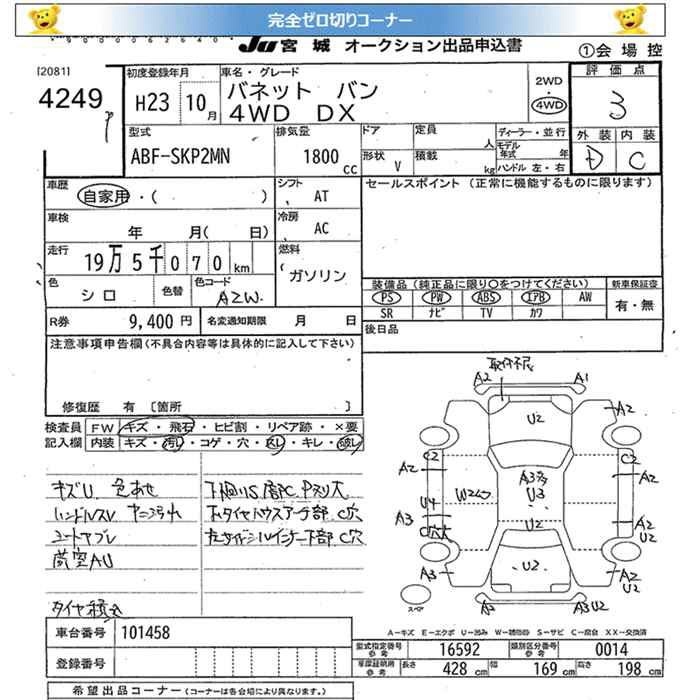 完全ゼロ切りコーナー
JU 宮城 オークション出品申込書
①会場控
[2081]
4249
初度登録年月
H23 10月
車名・グレード
バネット バン
4WD DX
2WD
・
4WD
評価点
3
外装 内装
D C
型式
ABF-SKP2MN
排気量
1800
cc
ドア
定員
人
形状
V
積載
kg
ディーラー・並行
モデル年式 年
ハンドル 左・右
車歴
自家用・( )
シフト
AT
セールスポイント (正常に機能するものに限ります)
車検
年 月( 日)
冷房
AC
走行
19万5千070km
燃料
ガソリン
色
シロ
色替
色コード
A2W
装備品 (純正品に限り○をつけてください)
新車保証書
PS PW ABS エアB AW
SR ナビ TV カワ
有・無
R券
9,400円
名変通知期限 月 日
後日品
注意事項申告欄(不具合内容等は具体的に記入して下さい)
修復歴 有 [箇所 ]
検査員
記入欄
FW キズ・飛石・ヒビ割・リペア跡・×要
内装 キズ・汚れ・コゲ・穴・スレ・キレ・破れ
キズU 色あせ
ハンドルスレ
シートヤブレ
荷室AU
タイヤ積込
下廻りS
取付不良
A2
A1
U2
A2
U2
C2
C2
A2
A2
A3多
U3
U4
W2
A3
U2
A2
U2
C穴
U2
A3
A2
U2
A3
A3 U2
スペア
A―キズ E―エクボ U―凹み W―補修跡 S―サビ C―腐食 XX―交換済
車台番号
101458
登録番号
型式指定番号
参考
16592
類別区分番号
参考
0014
車庫証明用
参考
長さ 428 cm 幅 169 cm 高さ 198 cm
希望出品コーナー (コーナーは各会場により異なります。)